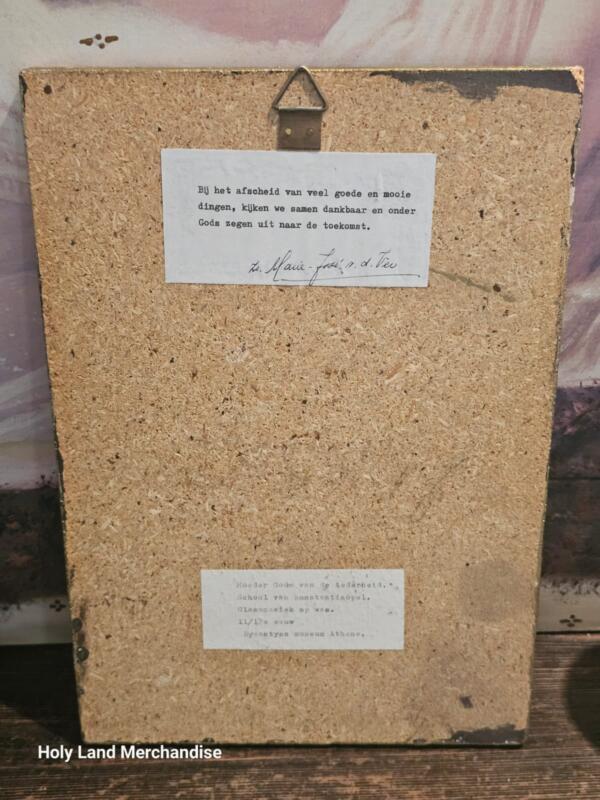 Bij het afscheid van veel goede en mooie
dingen, kijken we samen dankbaar en onder
Gods zegen uit naar de toekomst.
Marie-José v. d. Ven
Moeder Gods van de tederheid.
School van konstantinopel.
Glasmozaiek op was.
11/12e eeuw
museum Athene.
Holy Land Merchandise